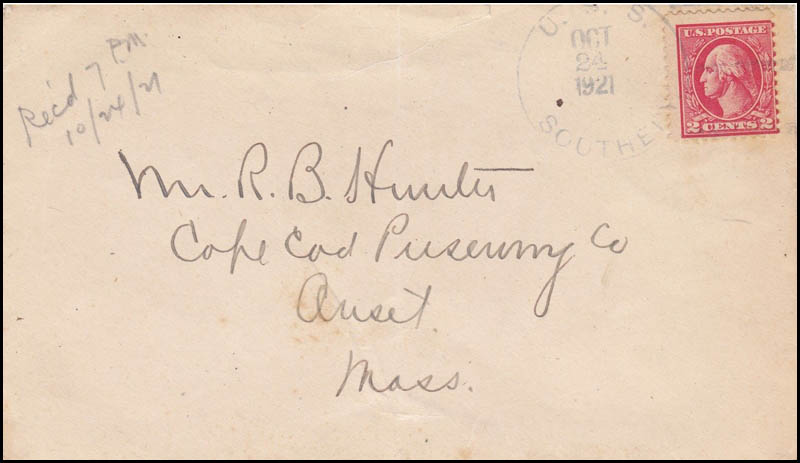 Rec'd 7 P.M.
10/24/21
U. S. S.
OCT
24
1921
SOUTHE
U.S. POSTAGE
2 CENTS 2
Mr. R. B. Hunter
Cape Cod Preserving Co
Onset.
Mass.